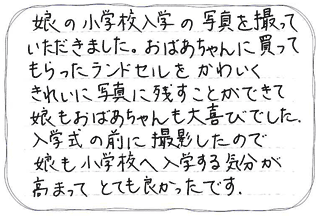 娘の小学校入学の写真を撮って
いただきました。おばあちゃんに買って
もらったランドセルをかわいく
きれいに写真に残すことができて
娘もおばあちゃんも大喜びでした.
入学式の前に撮影したので
娘も小学校へ入学する気分が
高まってとても良かったです.